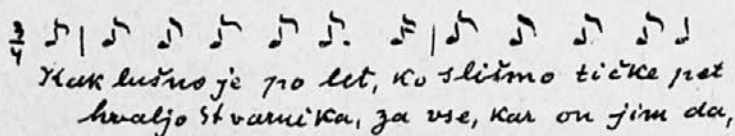 3/4
Kak lušno je po let, ko slišmo tičke pet
hvaljo stvarnika, za vse, kar on jim da,